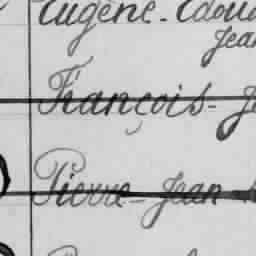 Eugène-Edou
Jean
François-Je
Pierre-Jean